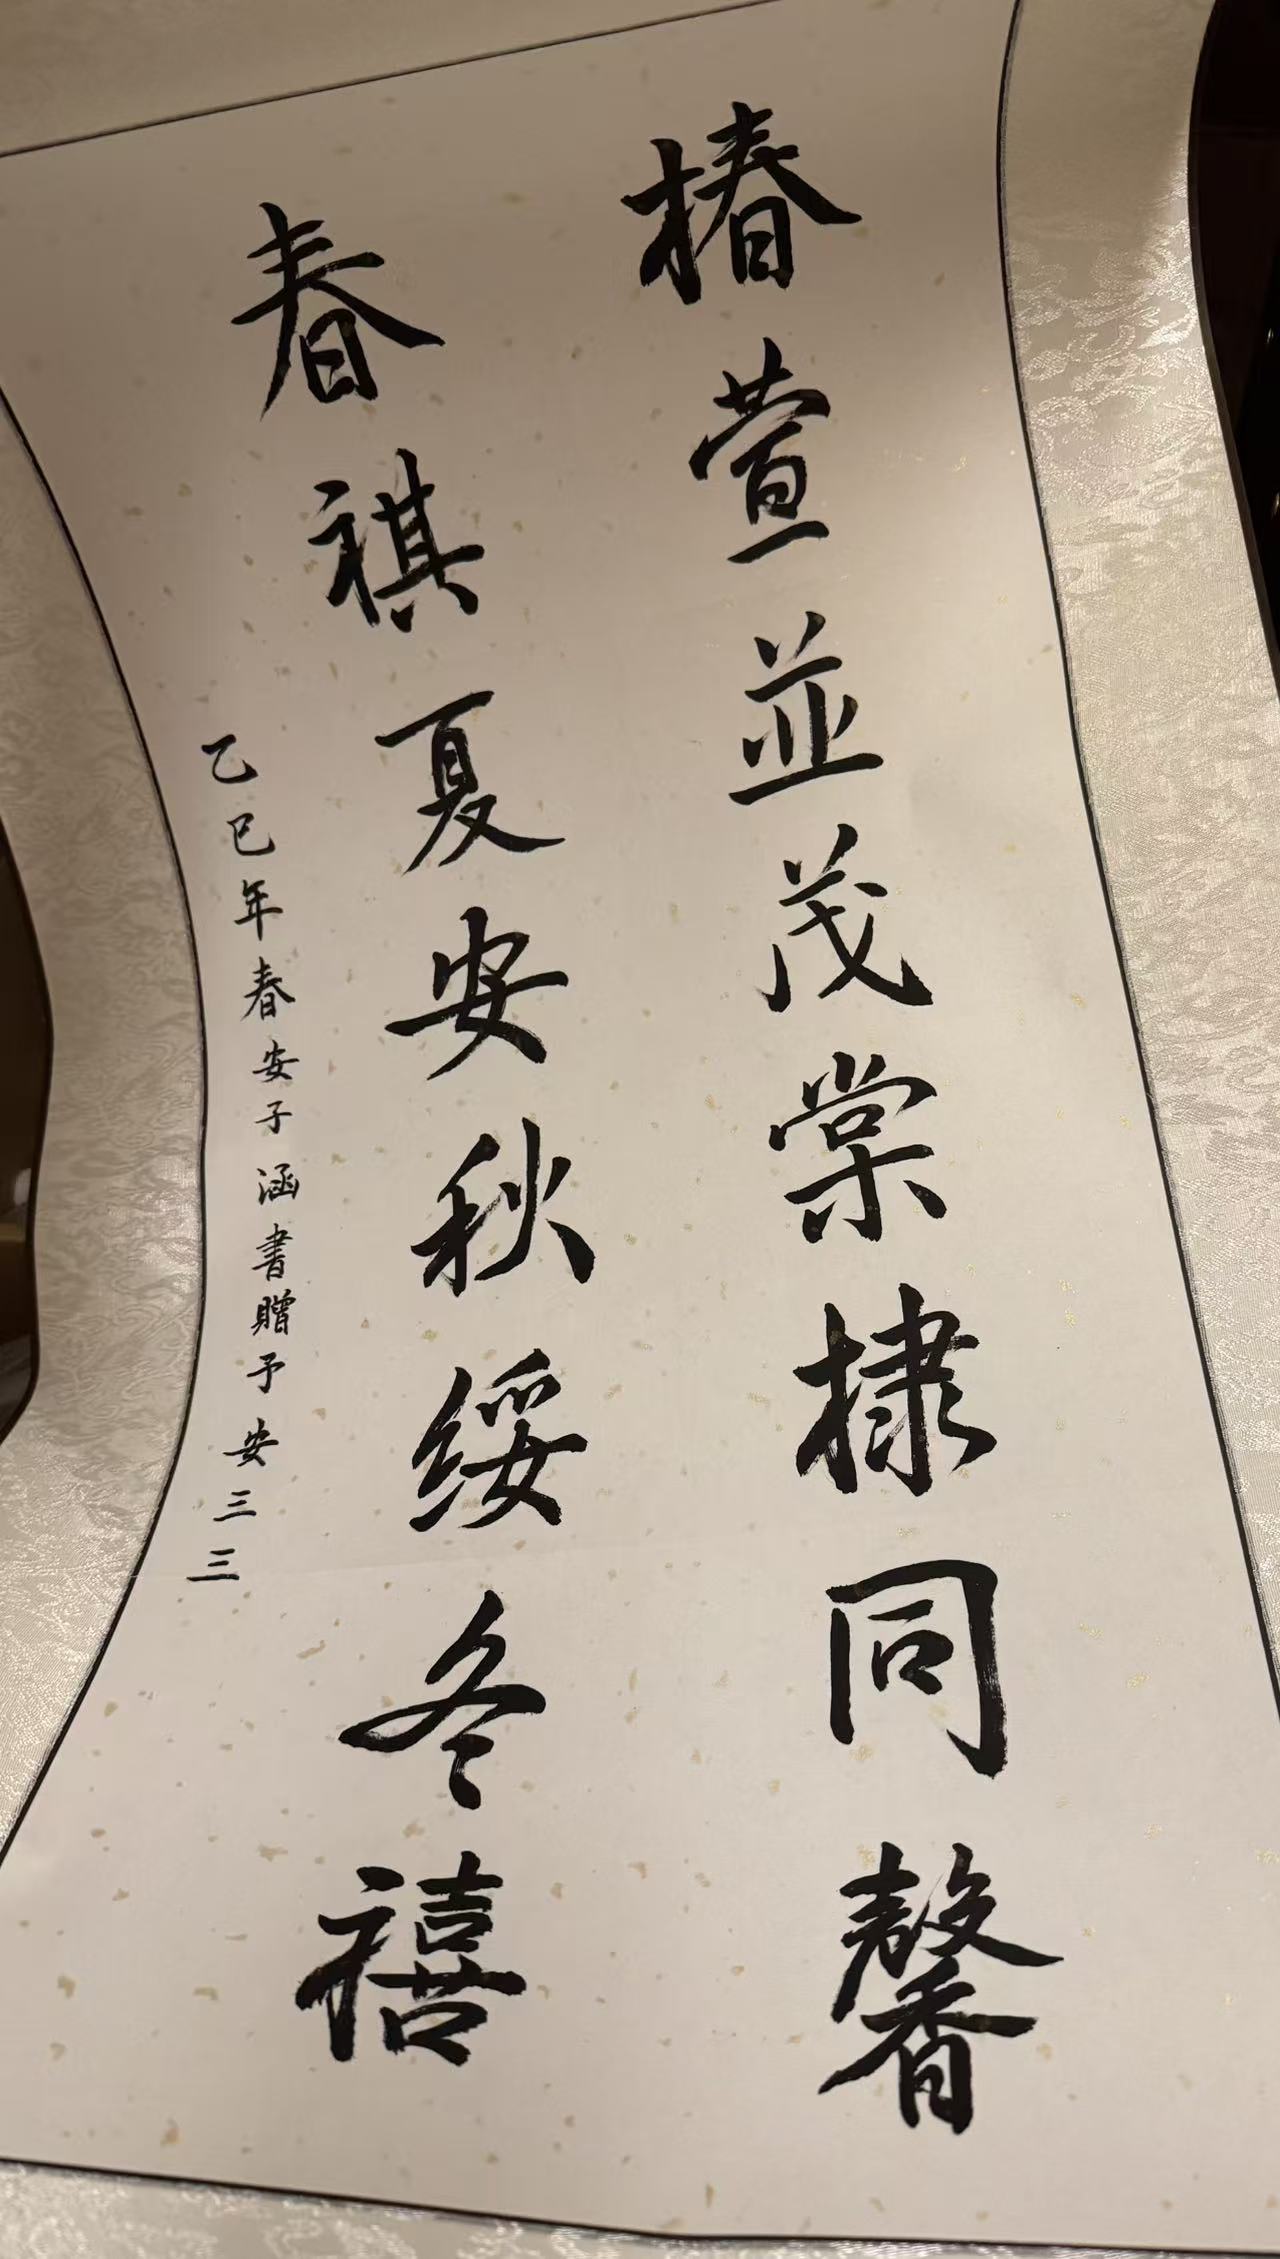 椿萱並茂棠棣同馨
春祺夏安秋绥冬禧
乙巳年春安子涵書贈予安三三